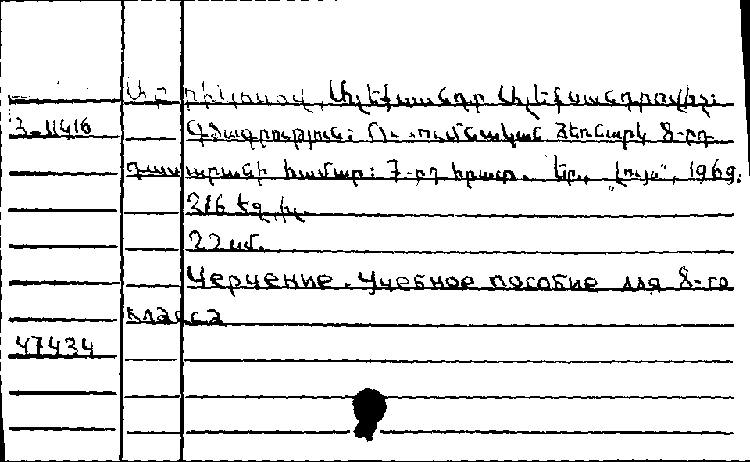 Ալեքսանդր Ալեքսանդրովիչ:
3-11416 Գծագրություն: Ուսումնական ձեռնարկ 8-րդ
դասարանի համար: 7-րդ հրատ. Եր., "Լույս", 1969.
216 եջ,
22 սմ.
Черчение. Учебное пособие для 8-го
класса
47434